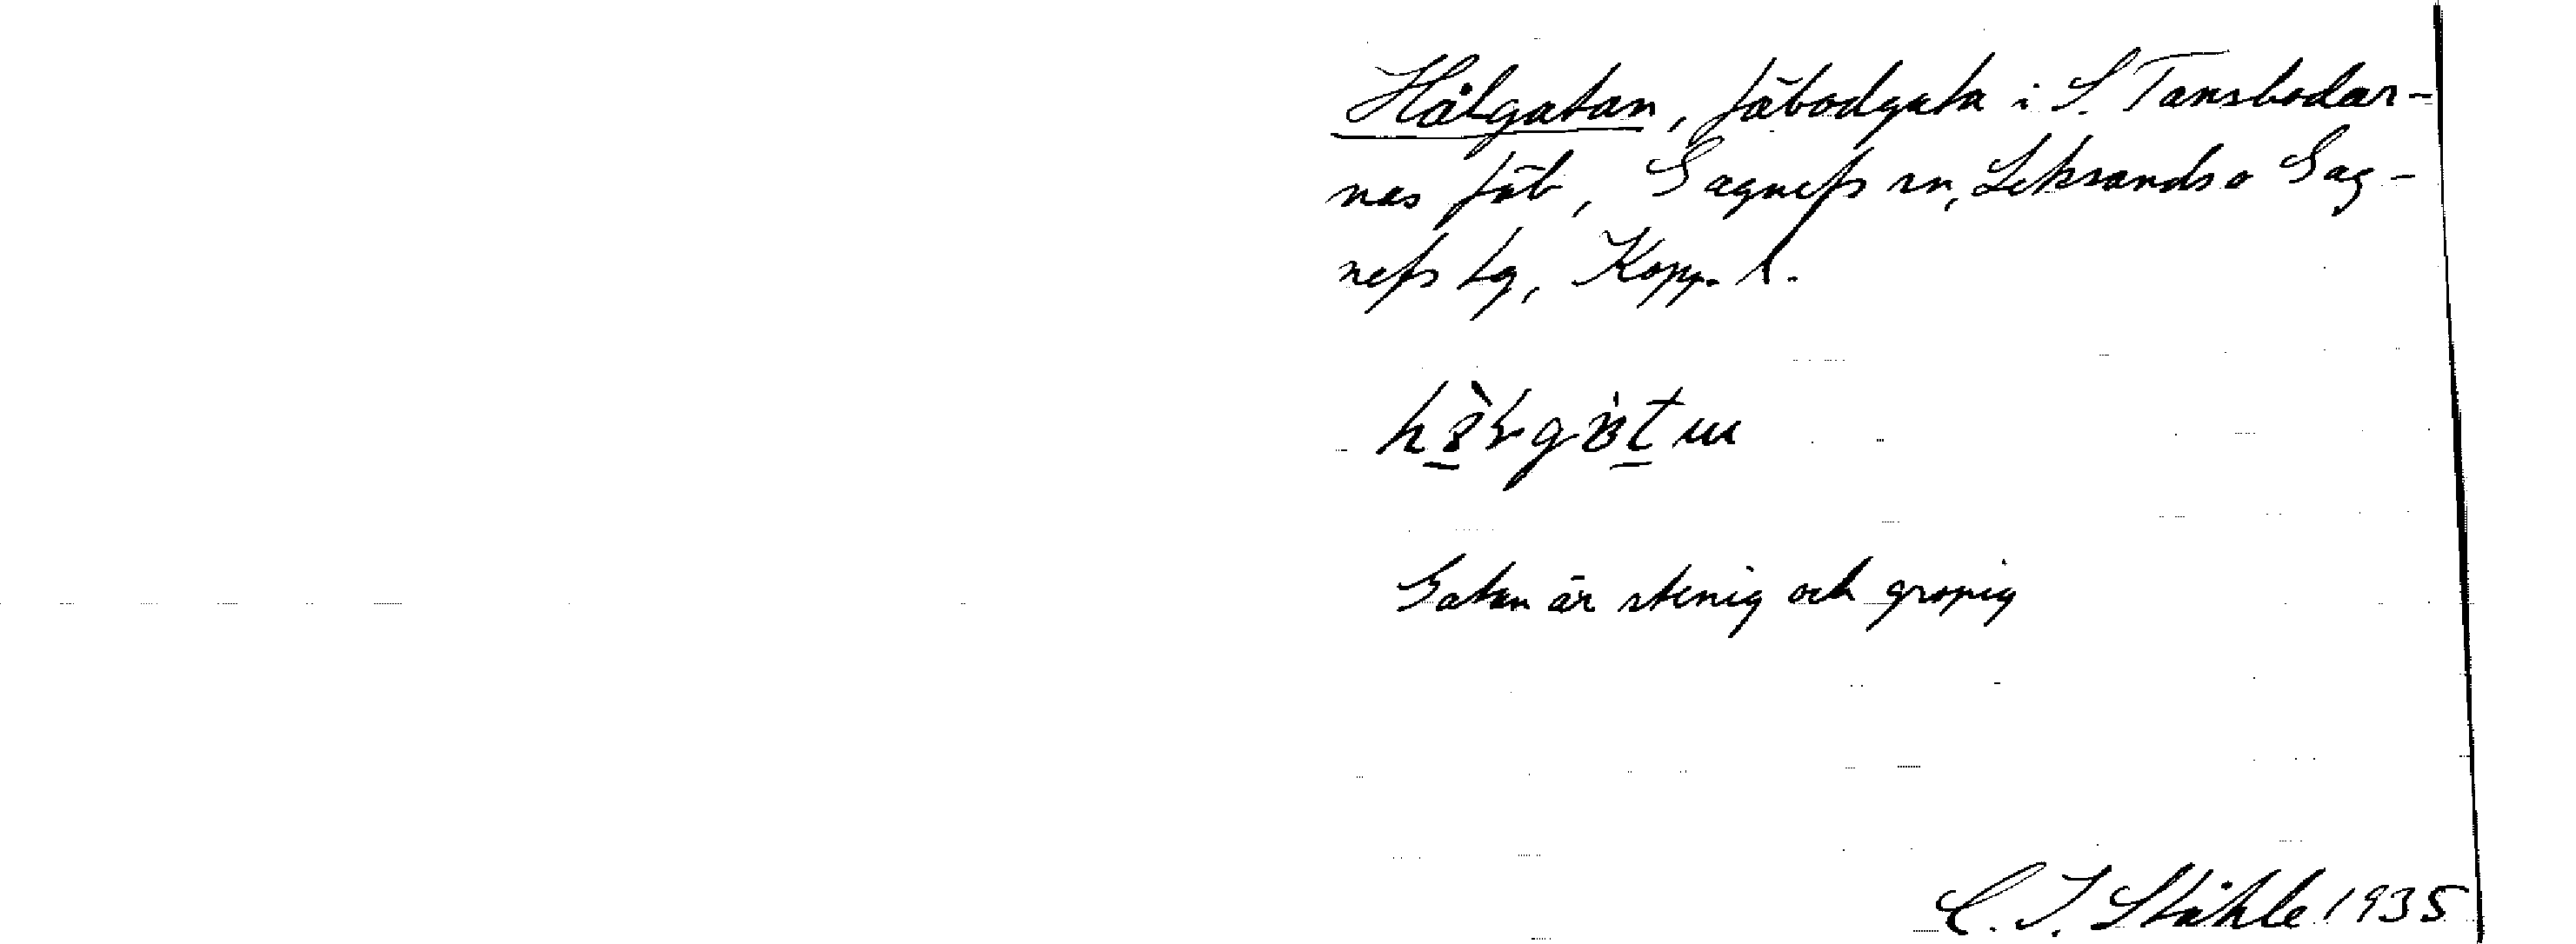 Hålgatan, fäbodgata i S. Tansbodar-
nas fäb, Gagnefs sn, Leksands o Gag-
nefs tg, Kopp. l.
Gatan är stenig och gropig
C. I. Ståhle 1935